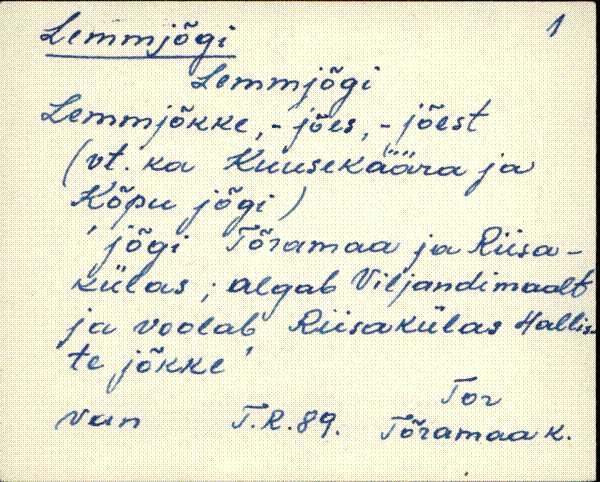 Lemmjõgi 1
Lemmjõgi
Lemmjõkke, -jões, -jõest
(vt. ka Kuusekäära ja
Kõpu jõgi)
' jõgi Tõramaa ja Riisa-
külas; algab Viljandimaalt
ja voolab Riisakülas Hallis-
te jõkke '
Tor
van T.R. 89. Tõramaa k.